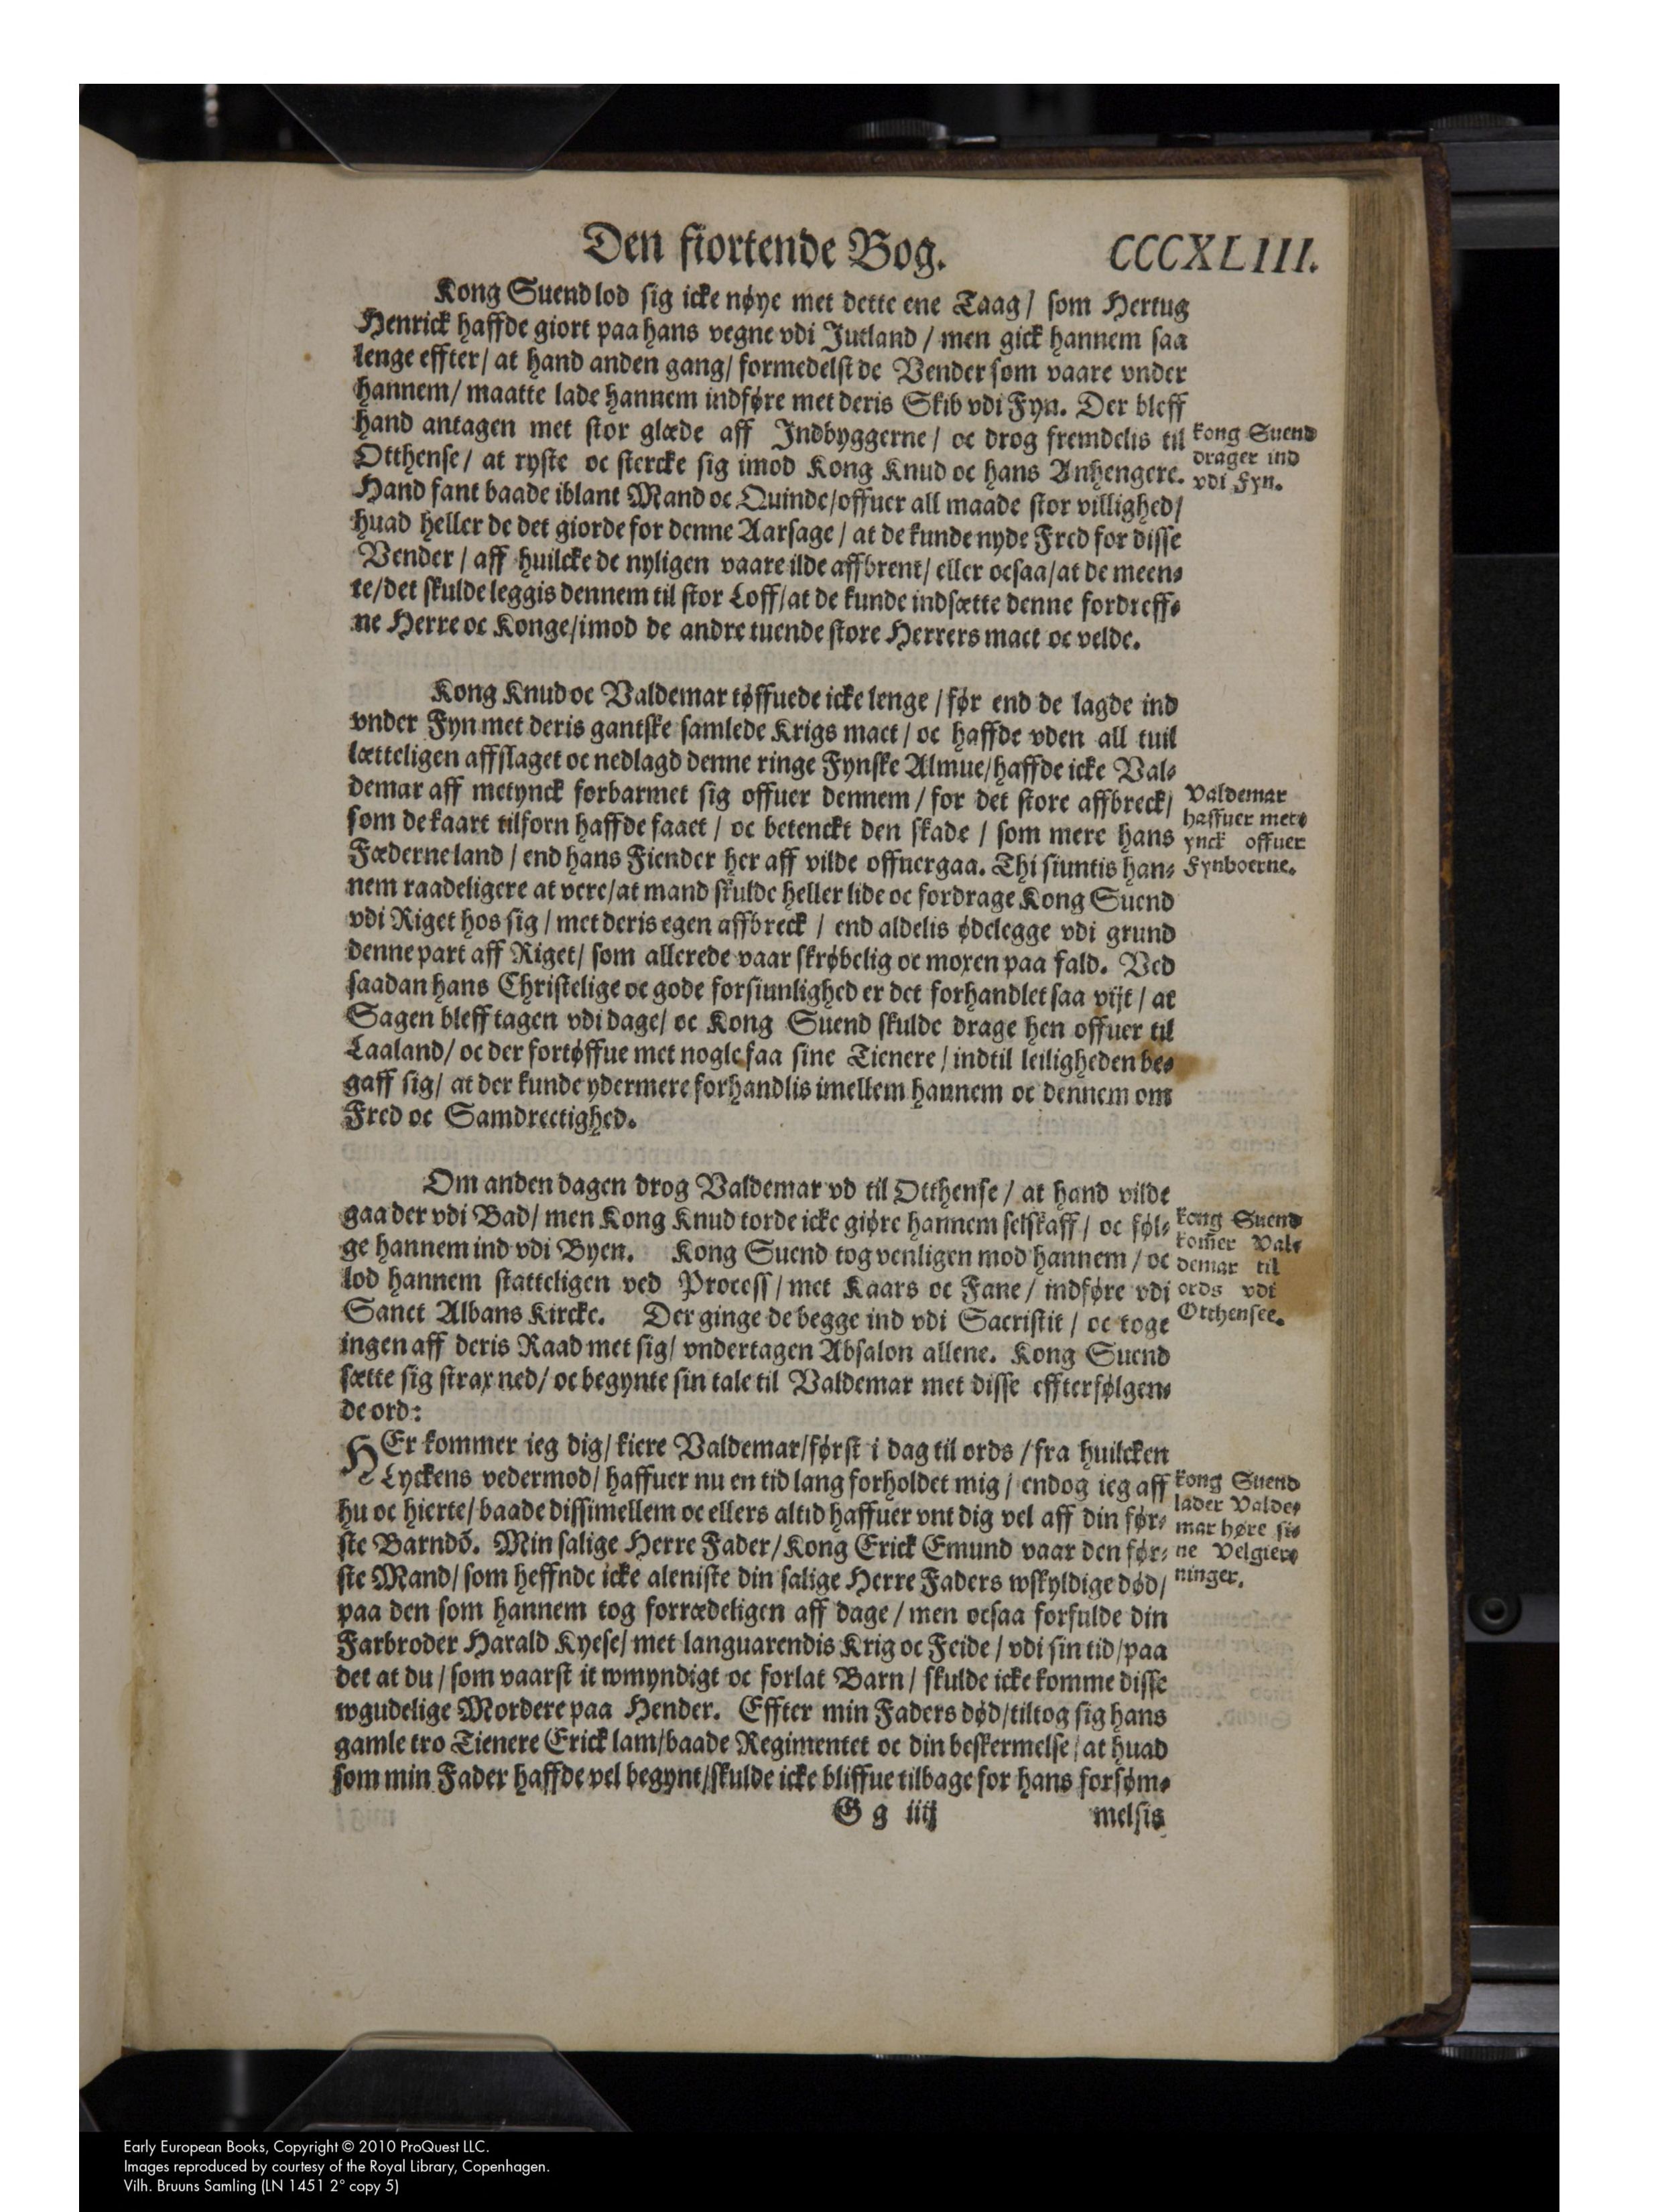 Den fiortende Bog. CCCXLIII.
Kong Suend lod sig icke nøye met dette ene Taag / som Hertug
Henrick haffde giort paa hans vegne vdi Jutland / men gick hannem saa
lenge effter / at hand anden gang / formedelst de Vender som vaare vnder
hannem / maatte lade hannem indføre met deris Skib vdi Fyn. Der bleff
hand antagen met stor glæde aff Indbyggerne / oc drog fremdelis til
Otthense / at ryste oc stercke sig imod Kong Knud oc hans Anhengere.
Hand fant baade iblant Mand oc Quinde / offuer all maade stor villighed /
huad heller de det giorde for denne Aarsage / at de kunde nyde Fred for disse
Vender / aff huilcke de nyligen vaare ilde affbrent / eller ocsaa / at de meen-
te / det skulde leggis dennem til stor Loff / at de kunde indsætte denne fordreff-
ne Herre oc Konge / imod de andre tuende store Herrers mact oc velde.
kong Suend
drager ind
vdi Fyn.
Kong Knud oc Valdemar tøffuede icke lenge / før end de lagde ind
vnder Fyn met deris gantske samlede Krigs mact / oc haffde vden all tuil
lætteligen affslaget oc nedlagd denne ringe Fynske Almue / haffde icke Val-
demar aff metynck forbarmet sig offuer dennem / for det store affbreck /
som de kaart tilforn haffde faaet / oc betenckt den skade / som mere hans
Fæderne land / end hans Fiender her aff vilde offuergaa. Thi siuntis han-
nem raadeligere at vere / at mand skulde heller lide oc fordrage Kong Suend
vdi Riget hos sig / met deris egen affbreck / end aldelis ødelegge vdi grund
denne part aff Riget / som allerede vaar skrøbelig oc moxen paa fald. Ved
saadan hans Christelige oc gode forsiunlighed er det forhandlet saa vijt / at
Sagen bleff tagen vdi dage / oc Kong Suend skulde drage hen offuer til
Laaland / oc der fortøffue met nogle faa sine Tienere / indtil leiligheden be-
gaff sig / at der kunde ydermere forhandlis imellem hannem oc dennem om
Fred oc Samdrectighed.
Valdemar
haffuer met-
ynck offuer
Fynboerne.
Om anden dagen drog Valdemar vd til Otthense / at hand vilde
gaa der vdi Bad / men Kong Knud torde icke giøre hannem selskaff / oc føl-
ge hannem ind vdi Byen. Kong Suend tog venligen mod hannem / oc
lod hannem statteligen ved Process / met Kaars oc Fane / indføre vdi
Sanct Albans Kircke. Der ginge de begge ind vdi Sacristit / oc toge
ingen aff deris Raad met sig / vndertagen Absalon allene. Kong Suend
sætte sig strax ned / oc begynte sin tale til Valdemar met disse effterfølgen-
de ord:
kong Suend
kom̃er Val-
demar til
ords vdi
Otthensee.
HEr kommer ieg dig / kiere Valdemar / først i dag til ords / fra huilcken
Lyckens vedermod / haffuer nu en tid lang forholdet mig / endog ieg aff
hu oc hierte / baade dissimellem oc ellers altid haffuer vnt dig vel aff din før-
ste Barndõ. Min salige Herre Fader / Kong Erick Emund vaar den før-
ste Mand / som heffnde icke aleniste din salige Herre Faders wskyldige død /
paa den som hannem tog forrædeligen aff dage / men ocsaa forfulde din
Farbroder Harald Kyese / met languarendis Krig oc Feide / vdi sin tid / paa
det at du / som vaarst it wmyndigt oc forlat Barn / skulde icke komme disse
wgudelige Mordere paa Hender. Effter min Faders død / tiltog sig hans
gamle tro Tienere Erick lam / baade Regimentet oc din beskermelse / at huad
som min Fader haffde vel begynt / skulde icke bliffue tilbage for hans forsøm-
kong Suend
lader Valde-
mar høre si-
ne Velgier-
ninger.
G g iiij melsis
Early European Books, Copyright © 2010 ProQuest LLC.
Images reproduced by courtesy of the Royal Library, Copenhagen.
Vilh. Bruuns Samling (LN 1451 2° copy 5)